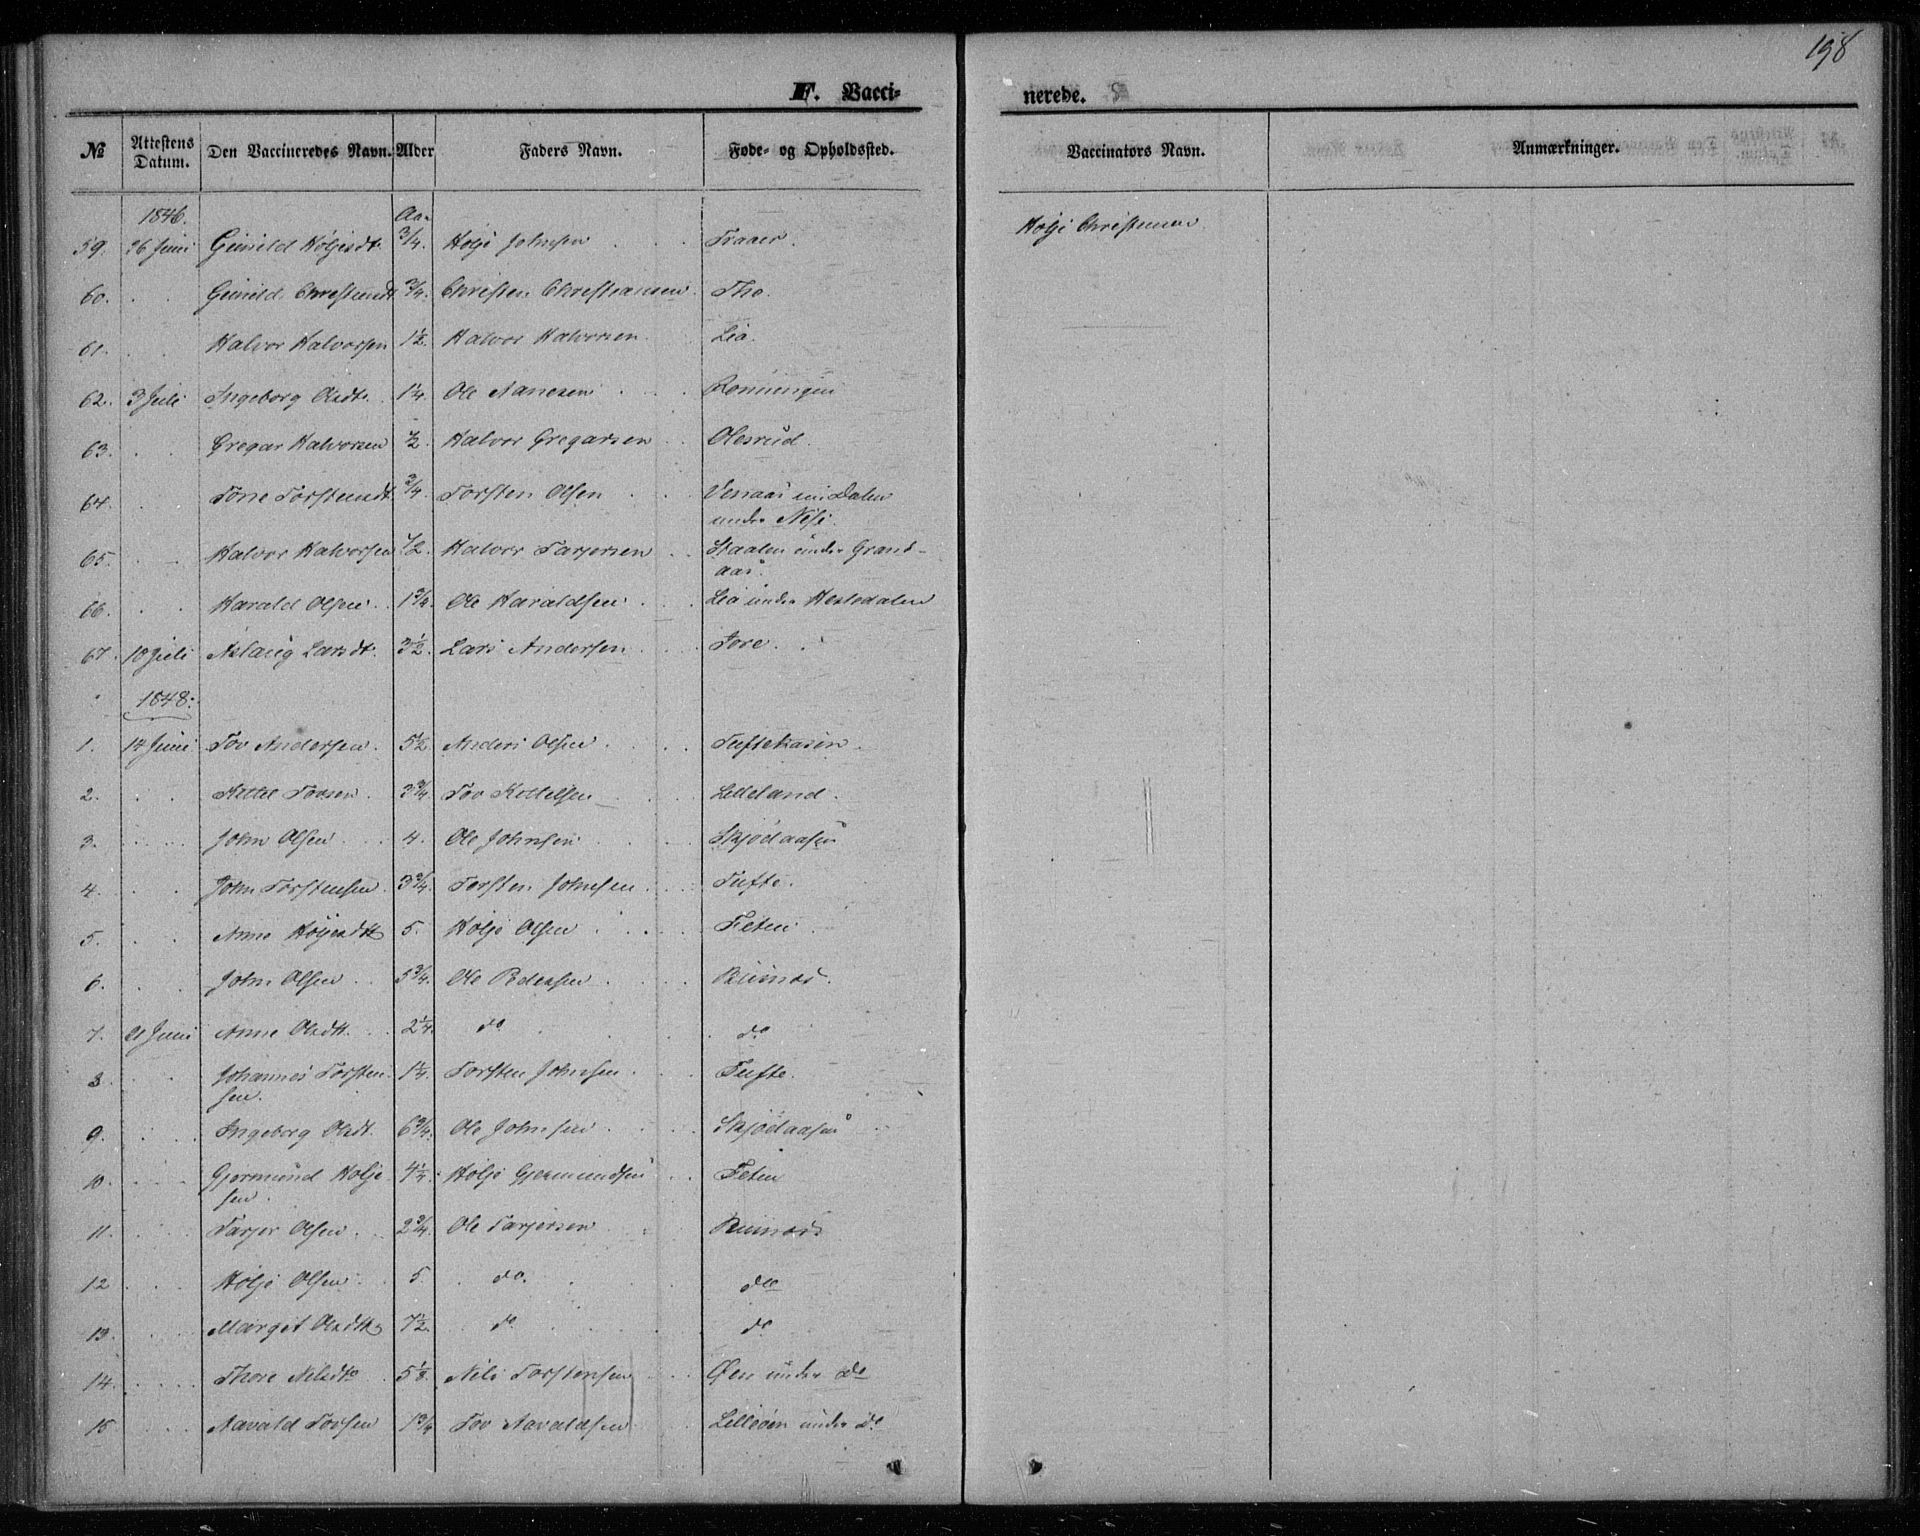 198
F. Vacci-
nerede.
№ Attestens Datum. Den Vaccineredes Navn. Alder Faders Navn. Føde- og Opholdssted. Vaccinators Navn. Anmærkninger.
1846. Aar
59. 26 Juni Gunild Høljesdt. 3/4. Hølje Johnsen Traaen. Hølje Christensen
60. Gunild Christensdt 3/4. Christen Christiansen Tho.
61. Halvor Halvorsen 1½. Halvor Halvorsen Lia.
62. 3 Juli Ingeborg Olsdt. 1¼. Ole Aanesen Rønningen
63. Gregar Halvorsen ½. Halvor Gregarsen Olesrud.
64. Tone Torstensdt. 3/4. Torsten Olsen Venaas i Dalen
under Nese.
65. Halvor Halvorsen ½. Halvor Tarjersen Staalen under Grand-
aas.
66. Harald Olsen 1¾. Ole Haraldsen Lia under Hestedalen
67. 10 Juli Aslaug Larsdt. 3½. Lars Andersen Fore.
1848.
1. 14 Juni Tov Andersen. 5½ Anders Olsen Tuftekaasin.
2. Kittel Tovsen 3¾. Tov Kittelsen Lilleland.
3. John Olsen 4. Ole Johnsen Skjødaasen
4. John Torstensen 3¾. Torsten Johnsen Tufte.
5. Anne Høljesdt 5. Hølje Olsen Teten
6. John Olsen 5¾. Ole Pedersen
7. 21 Juni Anne Olsdt. 2¼. do do
8. Johannes Torsten- 1¼. Torsten Johnsen Tufte.
sen.
9. Ingeborg Olsdt. 6¾. Ole Johnsen Skjødaasen
10. Gjermund Hølje- 4¼. Hølje Gjermundsen Teten
sen.
11. Tarjer Olsen 2¾. Ole Tarjersen
12 Hølje Olsen 5. do. do
13. Margit Olsdt 7½. do do
14. Thore Nilsdt. 5⅛. Nils Torstensen Øen under do
15 Aavald Tovsen 1¾ Tov Aavaldsen Lilleøen under do